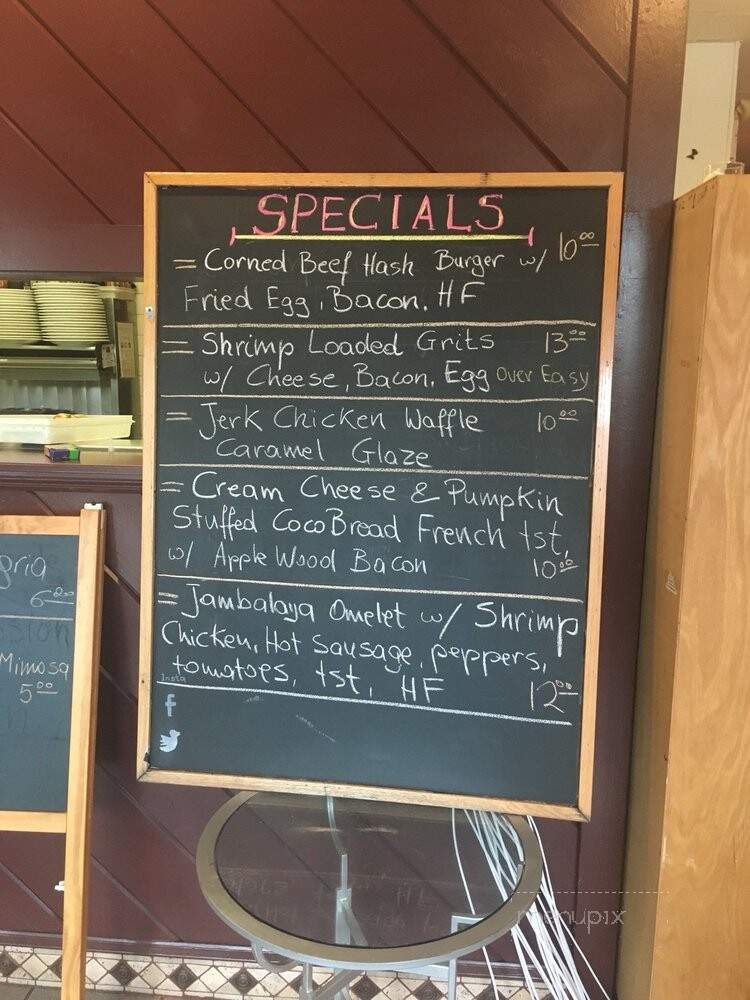 SPECIALS
= Corned Beef Hash Burger w/ 10⁰⁰
Fried Egg, Bacon, HF
= Shrimp Loaded Grits 13⁰⁰
w/ Cheese, Bacon, Egg Over Easy
= Jerk Chicken Waffle 10⁰⁰
Caramel Glaze
= Cream Cheese & Pumpkin
Stuffed CocoBread French tst,
w/ Apple Wood Bacon 10⁰⁰
= Jambalaya Omelet w/ Shrimp
Chicken, Hot Sausage, peppers,
tomatoes, tst, HF 12⁰⁰
Insta
f
gria
6⁰⁰
Mimosa
5⁰⁰
menupix